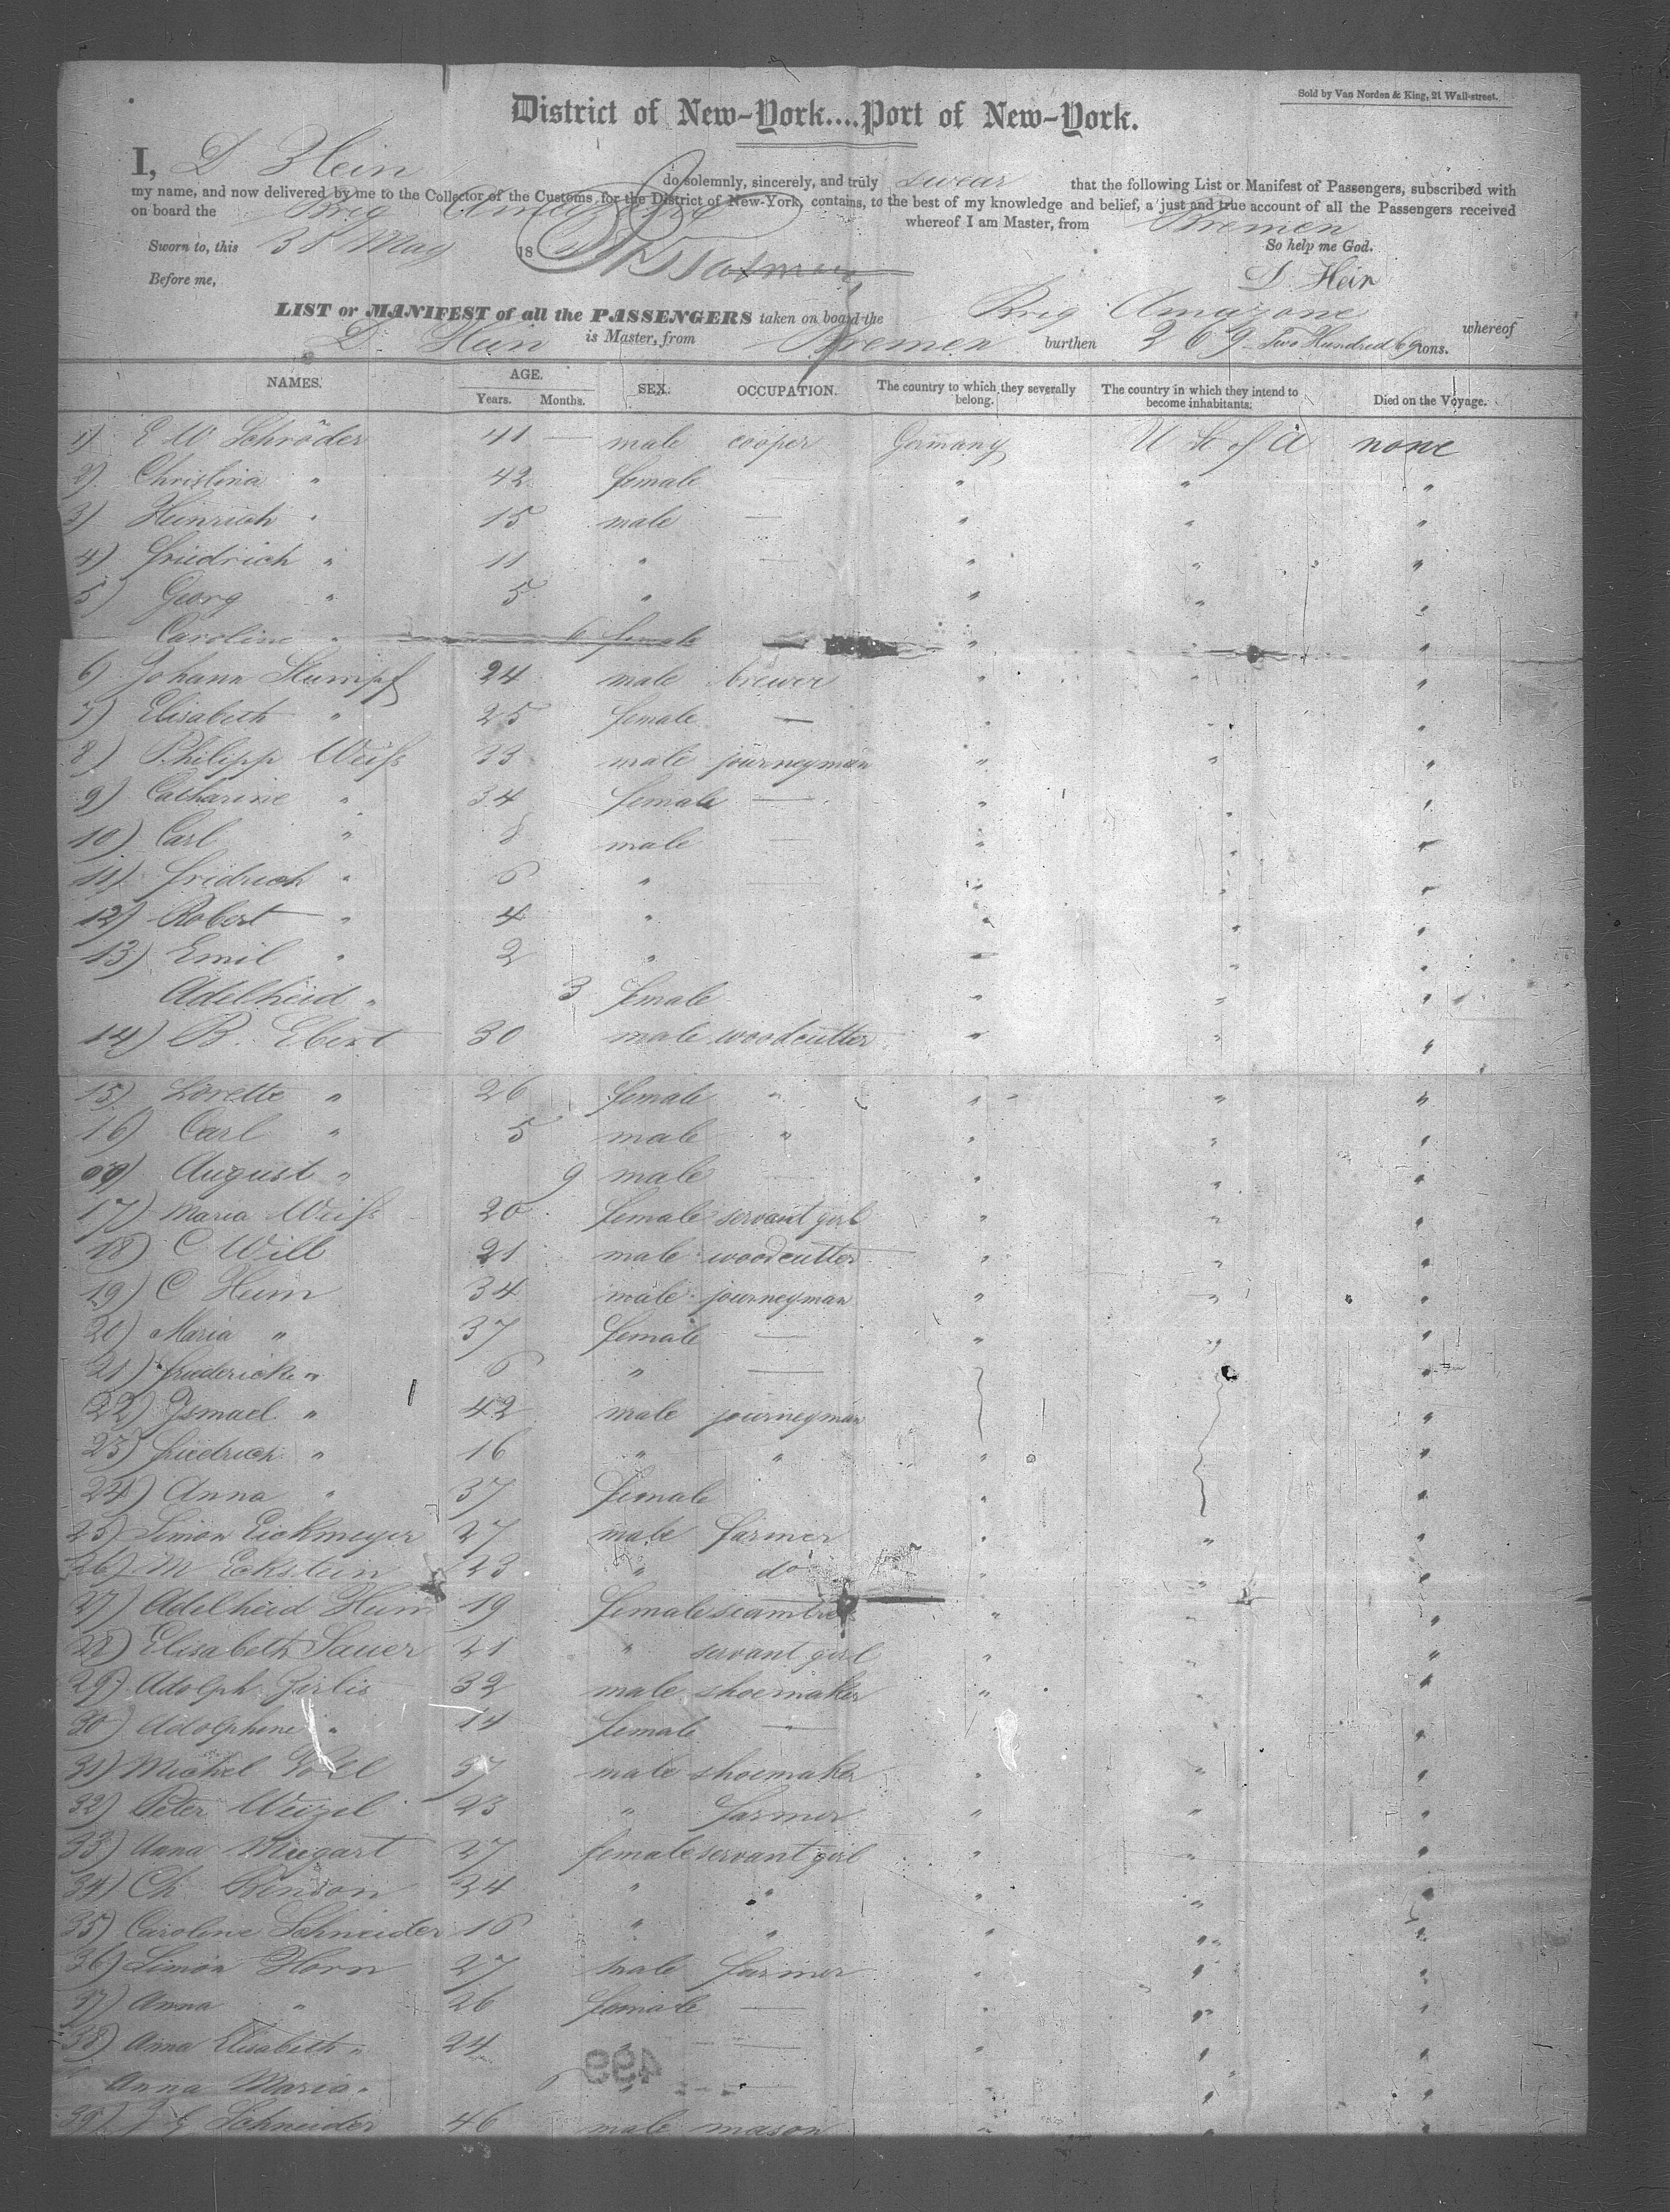 Sold by Van Norden & King, 21 Wall-street.
District of New-York....Port of New-York.
I, D Hein do solemnly, sincerely, and truly swear that the following List or Manifest of Passengers, subscribed with
my name, and now delivered by me to the Collector of the Customs for the District of New-York, contains, to the best of my knowledge and belief, a just and true account of all the Passengers received
on board the Brig Amazone whereof I am Master, from Bremen
Sworn to, this 31 May 18 So help me God.
Before me, D. Hein
LIST or MANIFEST of all the PASSENGERS taken on board the Brig Amazone whereof
D. Hein is Master, from Bremen burthen 269 Two Hundred 69 tons.
NAMES. AGE. SEX. OCCUPATION. The country to which they severally belong. The country in which they intend to become inhabitants. Died on the Voyage.
Years. Months.
1) E W Schröder 41 — male cooper Germany U St of A none
2) Christina " 42 female — " " "
3) Heinrich " 15 male — " " "
4) Friedrich " 11 " — " " "
5) Georg " 5 " " " "
Caroline " 6 female " "
6) Johann Stumpf 24 male brewer " " "
7) Elisabeth " 25 female — " " "
8) Philipp Weiss 33 male journeyman " " "
9) Catharine " 34 female — " " "
10) Carl " 8 male — " " "
11) Fridrich " 6 " — " " "
12) Robert " 4 " " " "
13) Emil " 2 " " " "
Adelheid " 3 female " " "
14) B. Ebert 30 male woodcutter " " "
15) Lorette " 26 female " " " "
16) Carl " 5 male " " " "
August " 9 male — " " "
17) Maria Weiss 20 female servant girl " " "
18) C Will 21 male woodcutter " " "
19) C Heim 34 male journeyman " " "
20) Maria " 37 female — " " "
21) Friedericke " 6 " — "
22) Ismael " 42 male journeyman "
23) Friedrich " 16 " " " "
24) Anna " 37 female " "
25) Simon Eickmeyer 27 male farmer " " "
26) M Eckstein 23 " do " " "
27) Adelheid Heim 19 female " " "
28) Elisabeth Sauer 21 " servant girl " " "
29) Adolph 32 male shoemaker " " "
30) Adolphine " 14 female — " "
31) Michel 37 male shoemaker " " "
32) Peter Weizel 23 " farmer " " "
33) Anna 27 female servant girl " " "
34) Ch. 24 " " " " "
35) Caroline Schneider 16 " " " " "
36) Simon Horn 27 male farmer " " "
37) Anna " 26 female — " " "
38) Anna Elisabeth " 24 " — " " "
Anna Maria " 6 " — " "
39) J G Schneider 46 male mason " " "
498